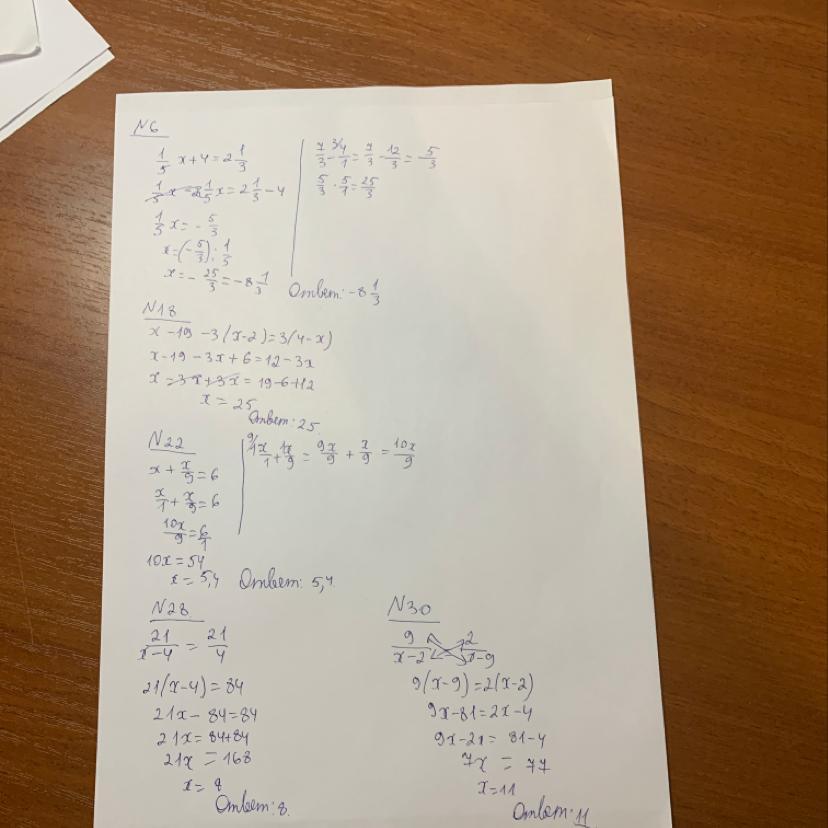 N6
1/5 x + 4 = 2 1/3
1/5 x = 2 1/3 - 4
1/5 x = - 5/3
x = (- 5/3) : 1/5
x = - 25/3 = -8 1/3
7/3 - 4/1 = 7/3 - 12/3 = - 5/3
5/3 · 5/1 = 25/3
Ответ: -8 1/3
N18
x - 19 - 3(x-2) = 3(4-x)
x - 19 - 3x + 6 = 12 - 3x
x - 3x + 3x = 19 - 6 + 12
x = 25
Ответ: 25
N22
x + x/9 = 6
x/1 + x/9 = 6
10x/9 = 6/1
10x = 54
x = 5,4
1x/1 + 1x/9 = 9x/9 + x/9 = 10x/9
Ответ: 5,4
N28
21/(x-4) = 21/4
21(x-4) = 84
21x - 84 = 84
21x = 84+84
21x = 168
x = 8
Ответ: 8.
N30
9/(x-2) 2/(x-9)
9(x-9) = 2(x-2)
9x - 81 = 2x - 4
9x - 2x = 81 - 4
7x = 77
x = 11
Ответ: 11